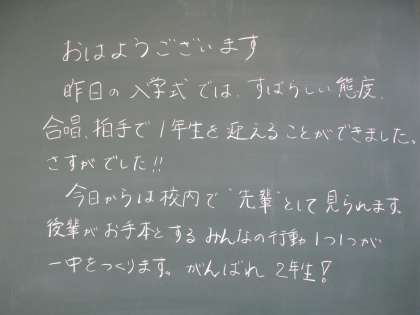 おはようございます
昨日の入学式では、すばらしい態度、
合唱、拍手で1年生を迎えることができました。
さすがでした!!
今日からは校内で“先輩”として見られます。
後輩がお手本とするみんなの行動1つ1つが
一中をつくります。がんばれ2年生!